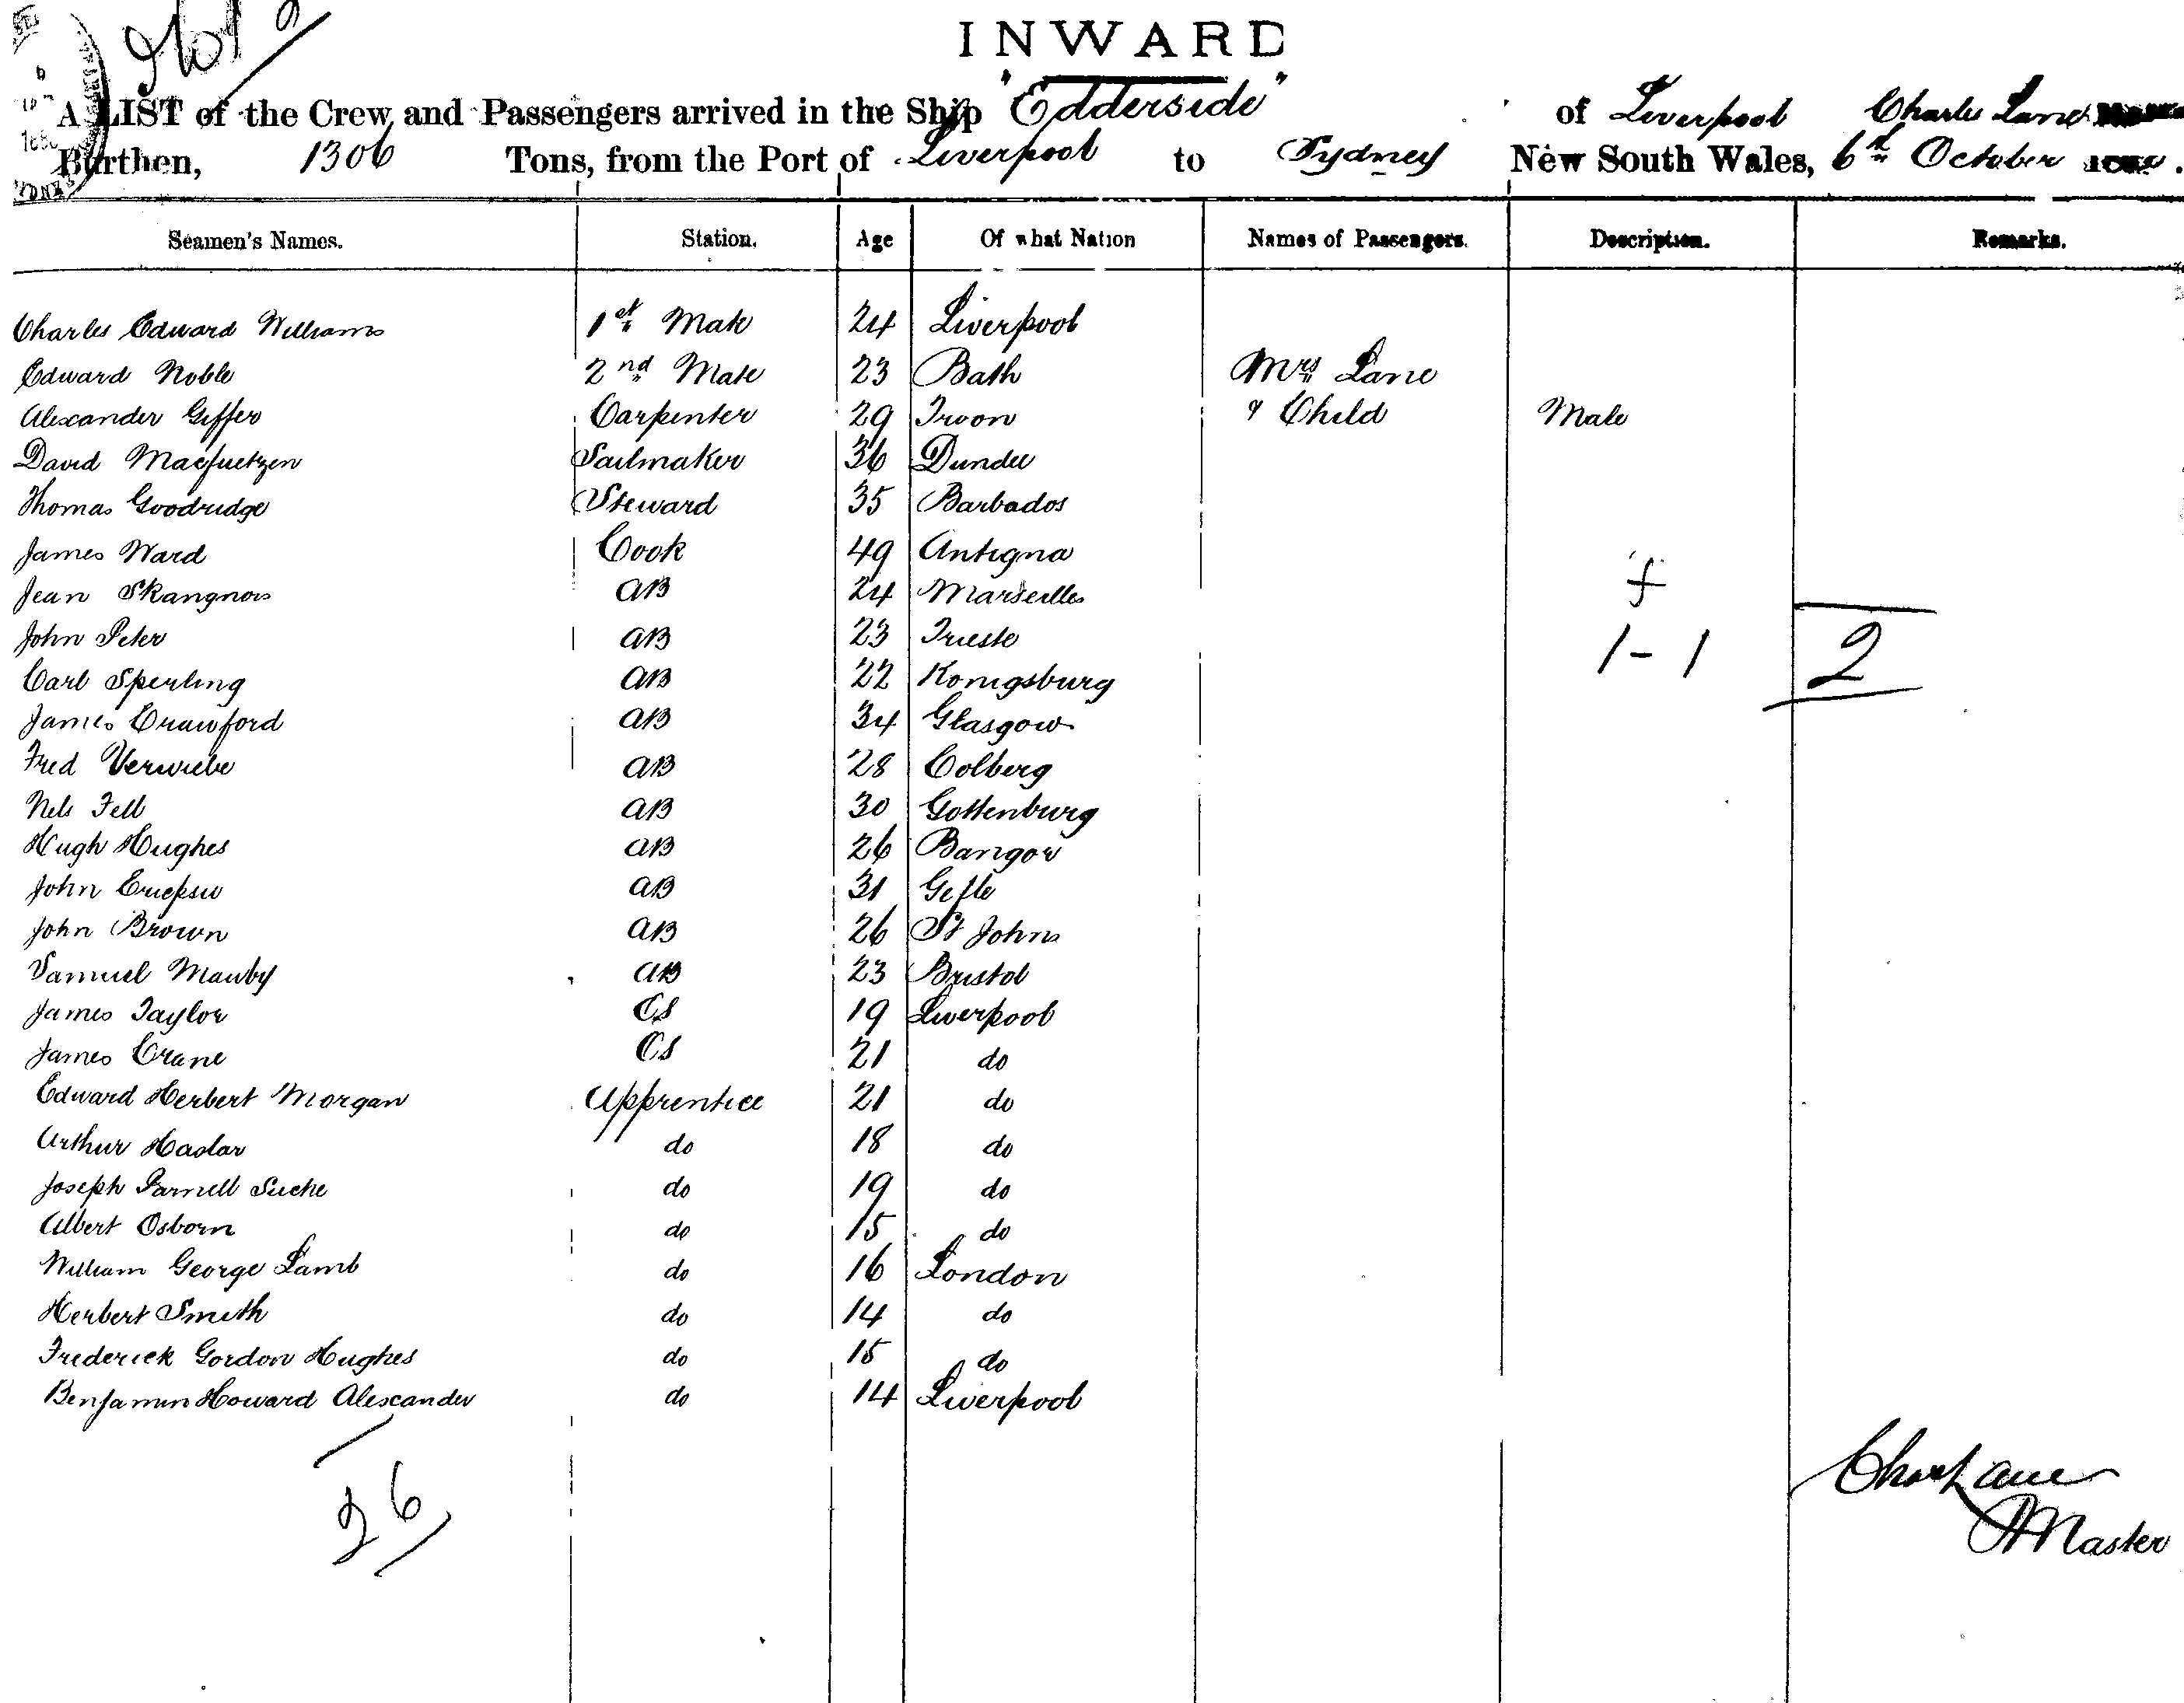 INWARD
A LIST of the Crew and Passengers arrived in the Ship "Edderside" of Liverpool Charles Lane
Burthen, 1306 Tons, from the Port of Liverpool to Sydney New South Wales, 6th October
Seamen's Names. Station. Age Of what Nation Names of Passengers. Description. Remarks.
Charles Edward Williams 1st Mate 24 Liverpool
Edward Noble 2nd Mate 23 Bath Mrs Lane
Alexander Giffer Carpenter 29 Troon & Child Male
David Sailmaker 36 Dundee
Thomas Goodridge Steward 35 Barbados
James Ward Cook 49 Antigna
Jean Skangnois AB 24 Marseilles f
John Peter AB 23 Trieste 1 - 1 2
Carl Sperling AB 22 Konigsburg
James Crawford AB 34 Glasgow
Fred Verwiebe AB 28 Colberg
Nels Fell AB 30 Gottenburg
Hugh Hughes AB 26 Bangor
John AB 31 Gefle
John Brown AB 26 St Johns
Samuel Manby AB 23 Bristol
James Taylor OS 19 Liverpool
James Crane OS 21 do
Edward Herbert Morgan Apprentice 21 do
Arthur Haslar do 18 do
Joseph Parnell Suche do 19 do
Albert Osborn do 15 do
William George Lamb do 16 London
Herbert Smith do 14 do
Frederick Gordon Hughes do 15 do
Benjamin Howard Alexander do 14 Liverpool
26
Chas Lane
Master